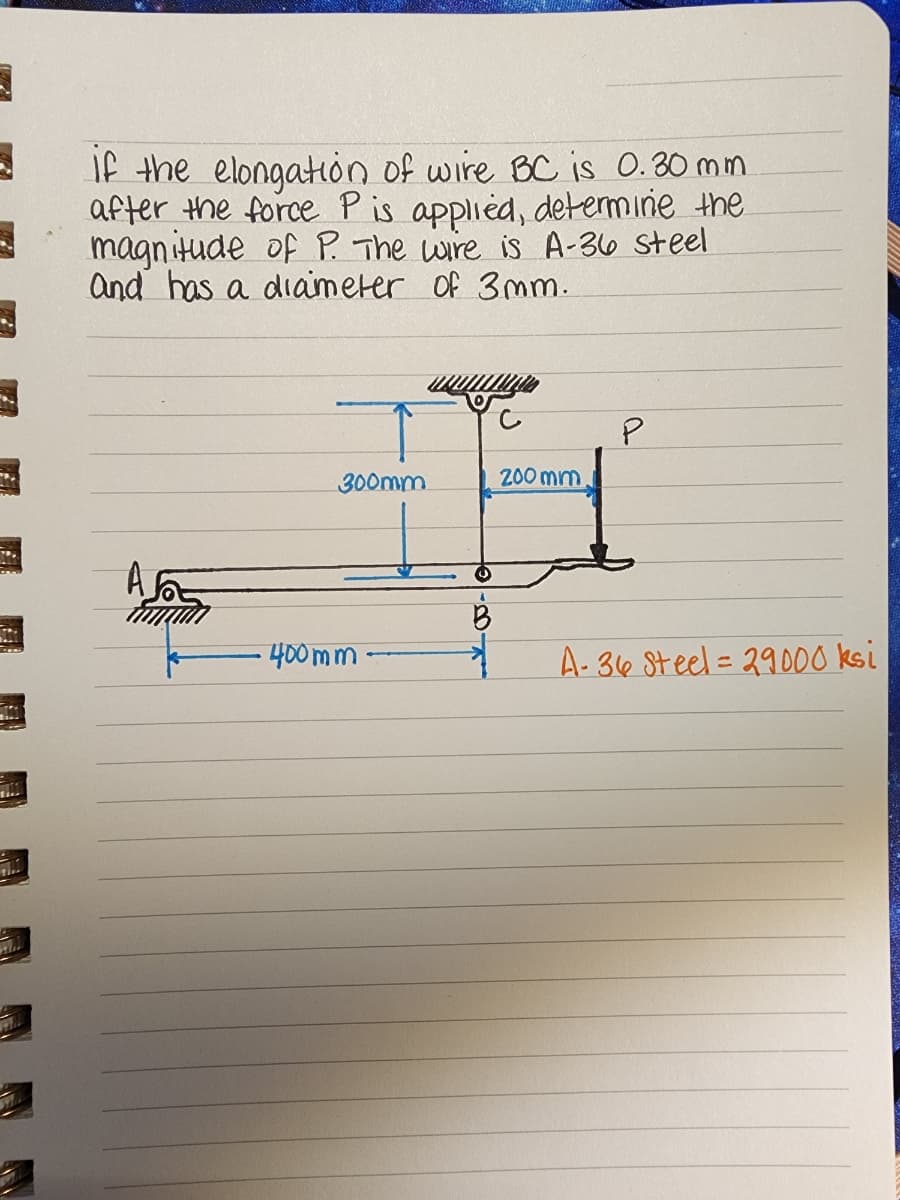 if the elongation of wire BC is 0.30 mm
after the force P is applied, determine the
magnitude of P. The wire is A-36 steel
and has a diameter of 3mm.
C
P
300mm
200mm
A
B
400mm
A-36 Steel = 29000 ksi